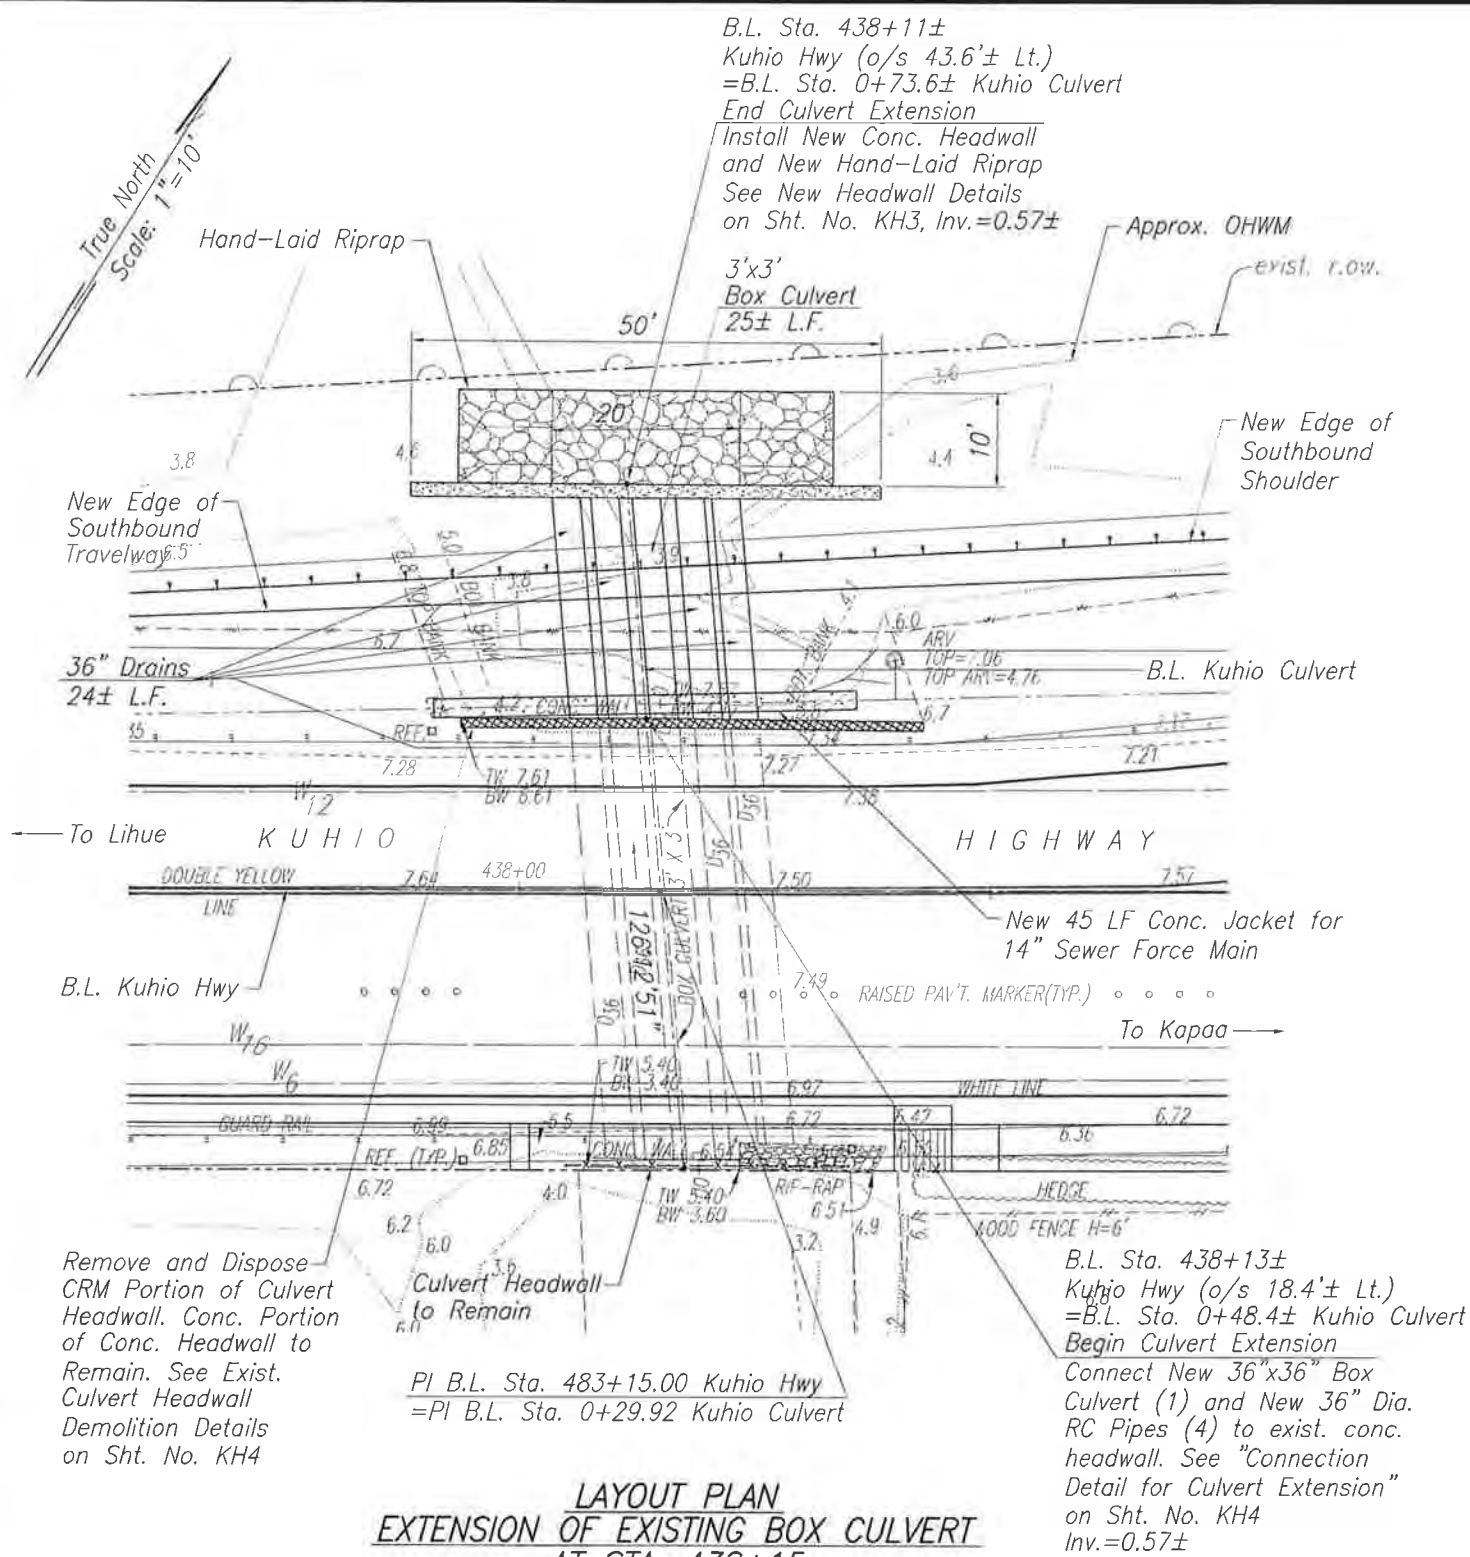 B.L. Sta. 438+11±
Kuhio Hwy (o/s 43.6'± Lt.)
=B.L. Sta. 0+73.6± Kuhio Culvert
End Culvert Extension
Install New Conc. Headwall
and New Hand-Laid Riprap
See New Headwall Details
on Sht. No. KH3, Inv.=0.57±
True North
Scale: 1"=10'
Hand-Laid Riprap
Approx. OHWM
exist. r.o.w.
3'x3'
Box Culvert
25± L.F.
50'
3.6
20'
10'
4.6
4.4
3.8
New Edge of
Southbound
Shoulder
New Edge of
Southbound
Travelway
6.5
5.0
BOT. BANK
6.8 TOP BANK
3.8
3.9
6.7
BOT. BANK 4.1
6.0
ARV
TOP=7.06
TOP ARV=4.76
36" Drains
24± L.F.
B.L. Kuhio Culvert
4.2 CONC. WALL
6.7
REF.
7.28
7.27
7.21
TW 7.61
BW 6.61
7.38
W12
To Lihue
KUHIO
HIGHWAY
3' X 3'
BOX CULVERT
D36
D36
D36
DOUBLE YELLOW
LINE
7.64
438+00
7.50
7.57
New 45 LF Conc. Jacket for
14" Sewer Force Main
B.L. Kuhio Hwy
7.49
RAISED PAV'T. MARKER(TYP.)
To Kapaa
W16
W6
TW 5.40
BW 3.40
6.97
WHITE LINE
GUARD RAIL
6.99
5.5
6.72
6.47
6.72
REF. (TYP.)
6.85
CONC. WALL
6.36
6.72
4.0
TW 5.40
BW 3.60
RIP-RAP
6.51
4.9
HEDGE
WOOD FENCE H=6'
6.2
6.0
3.6
3.2
6.0
Remove and Dispose
CRM Portion of Culvert
Headwall. Conc. Portion
of Conc. Headwall to
Remain. See Exist.
Culvert Headwall
Demolition Details
on Sht. No. KH4
Culvert Headwall
to Remain
PI B.L. Sta. 483+15.00 Kuhio Hwy
=PI B.L. Sta. 0+29.92 Kuhio Culvert
B.L. Sta. 438+13±
Kuhio Hwy (o/s 18.4'± Lt.)
6.8
=B.L. Sta. 0+48.4± Kuhio Culvert
Begin Culvert Extension
Connect New 36"x36" Box
Culvert (1) and New 36" Dia.
RC Pipes (4) to exist. conc.
headwall. See "Connection
Detail for Culvert Extension"
on Sht. No. KH4
Inv.=0.57±
LAYOUT PLAN
EXTENSION OF EXISTING BOX CULVERT
AT STA. 438+15